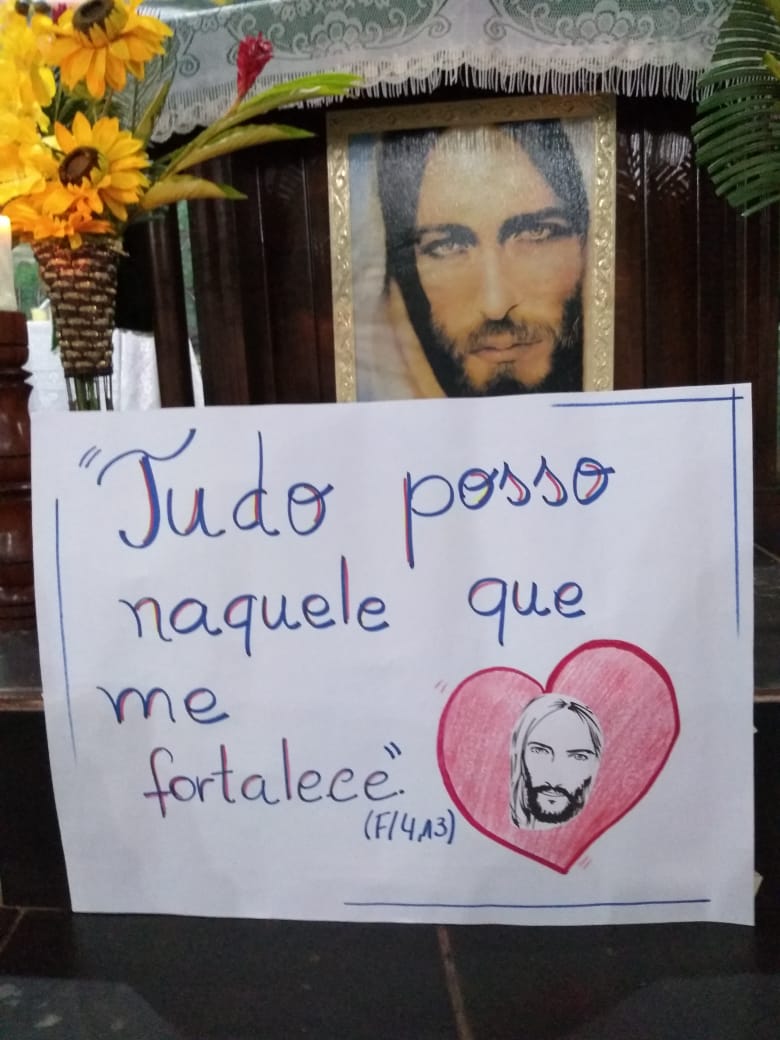 "Tudo posso
naquele que
me
fortalece".
(Fl 4,13)